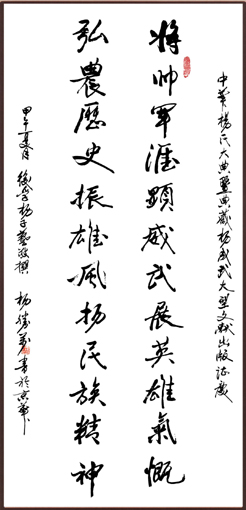 中華楊氏大典暨典藏杨成武大型文献出版志慶
將帥軍涯顯威武展英雄氣慨
弘農歷史振雄風扬民族精神
甲午夏月 杨子藝敬撰 杨 書於京華